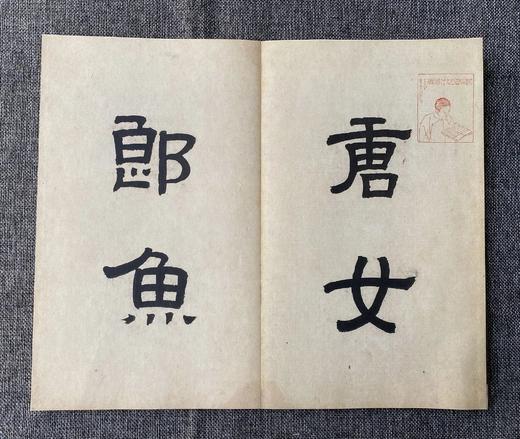 唐女
郎魚